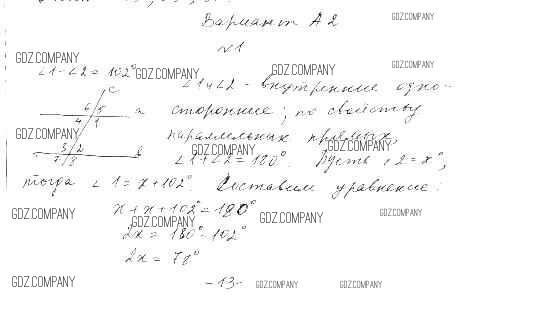 Вариант А2
GDZ.COMPANY
№1
GDZ.COMPANY
GDZ.COMPANY
∠1-∠2=102°
GDZ.COMPANY
GDZ.COMPANY
∠1 и ∠2 - внутренние одно-
c
6 5
4 1
a
сторонние; по свойству
GDZ.COMPANY
параллельных прямых,
GDZ.COMPANY
GDZ.COMPANY
3 2
7 8
b
∠1+∠2=180°. Пусть ∠2=x°,
тогда ∠1=x+102°. Составим уравнение:
x+x+102°=180°
GDZ.COMPANY
GDZ.COMPANY
GDZ.COMPANY
GDZ.COMPANY
2x=180°-102°
2x=78°
GDZ.COMPANY
-13-
GDZ.COMPANY
GDZ.COMPANY